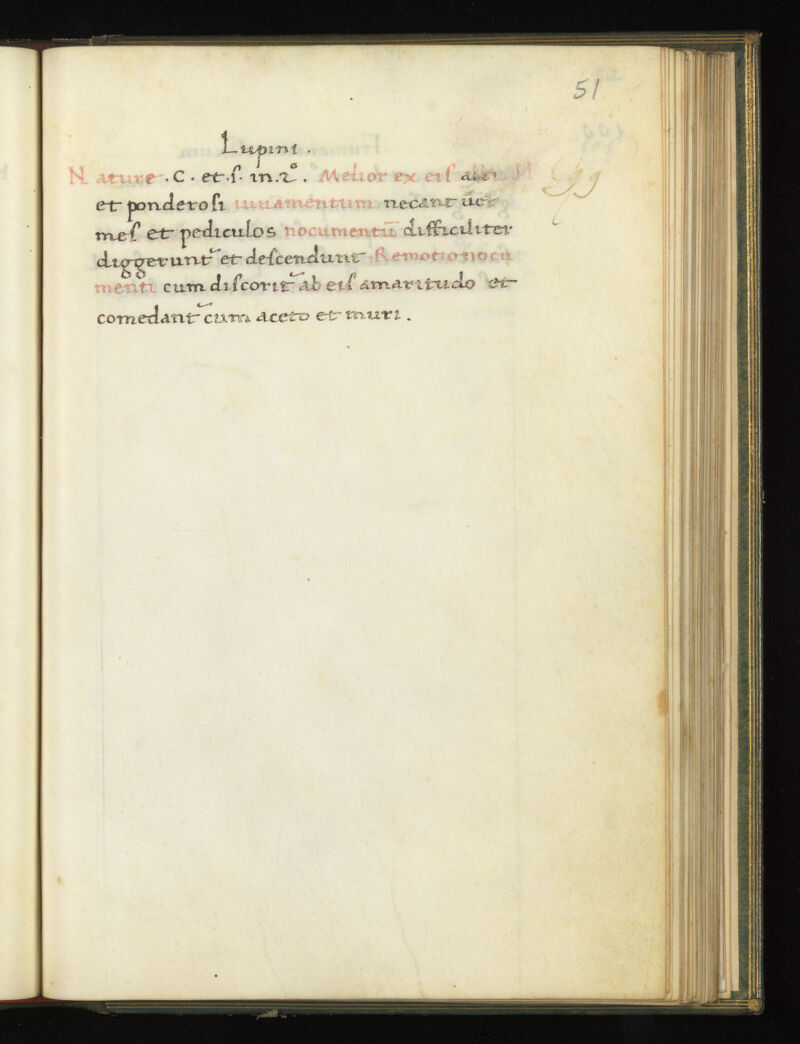 51
Lupini .
Nature . C . et . s . in . 2º . Melior ex eis
et ponderosi iuuamentum necant uer
mes et pediculos nocumentū difficiliter
diggerunt̃ et descendunt̃ Remotio nocu
menti cum discorit̃ ab eis amaritudo et
comedant̃ cum aceto et muri .